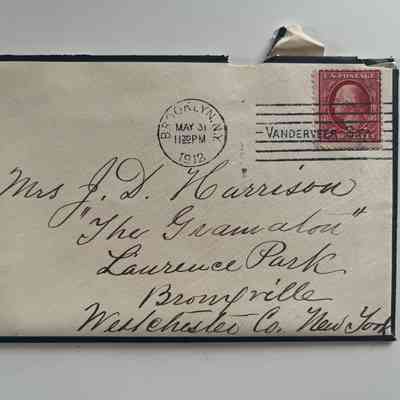 U.S. POSTAGE
BROOKLYN, N.Y.
MAY 31
11 30 PM
1912
VANDERVEER STA.
Mrs J. D. Harrison
"The Gramatan"
Lawrence Park
Bronxville
Westchester Co. New York